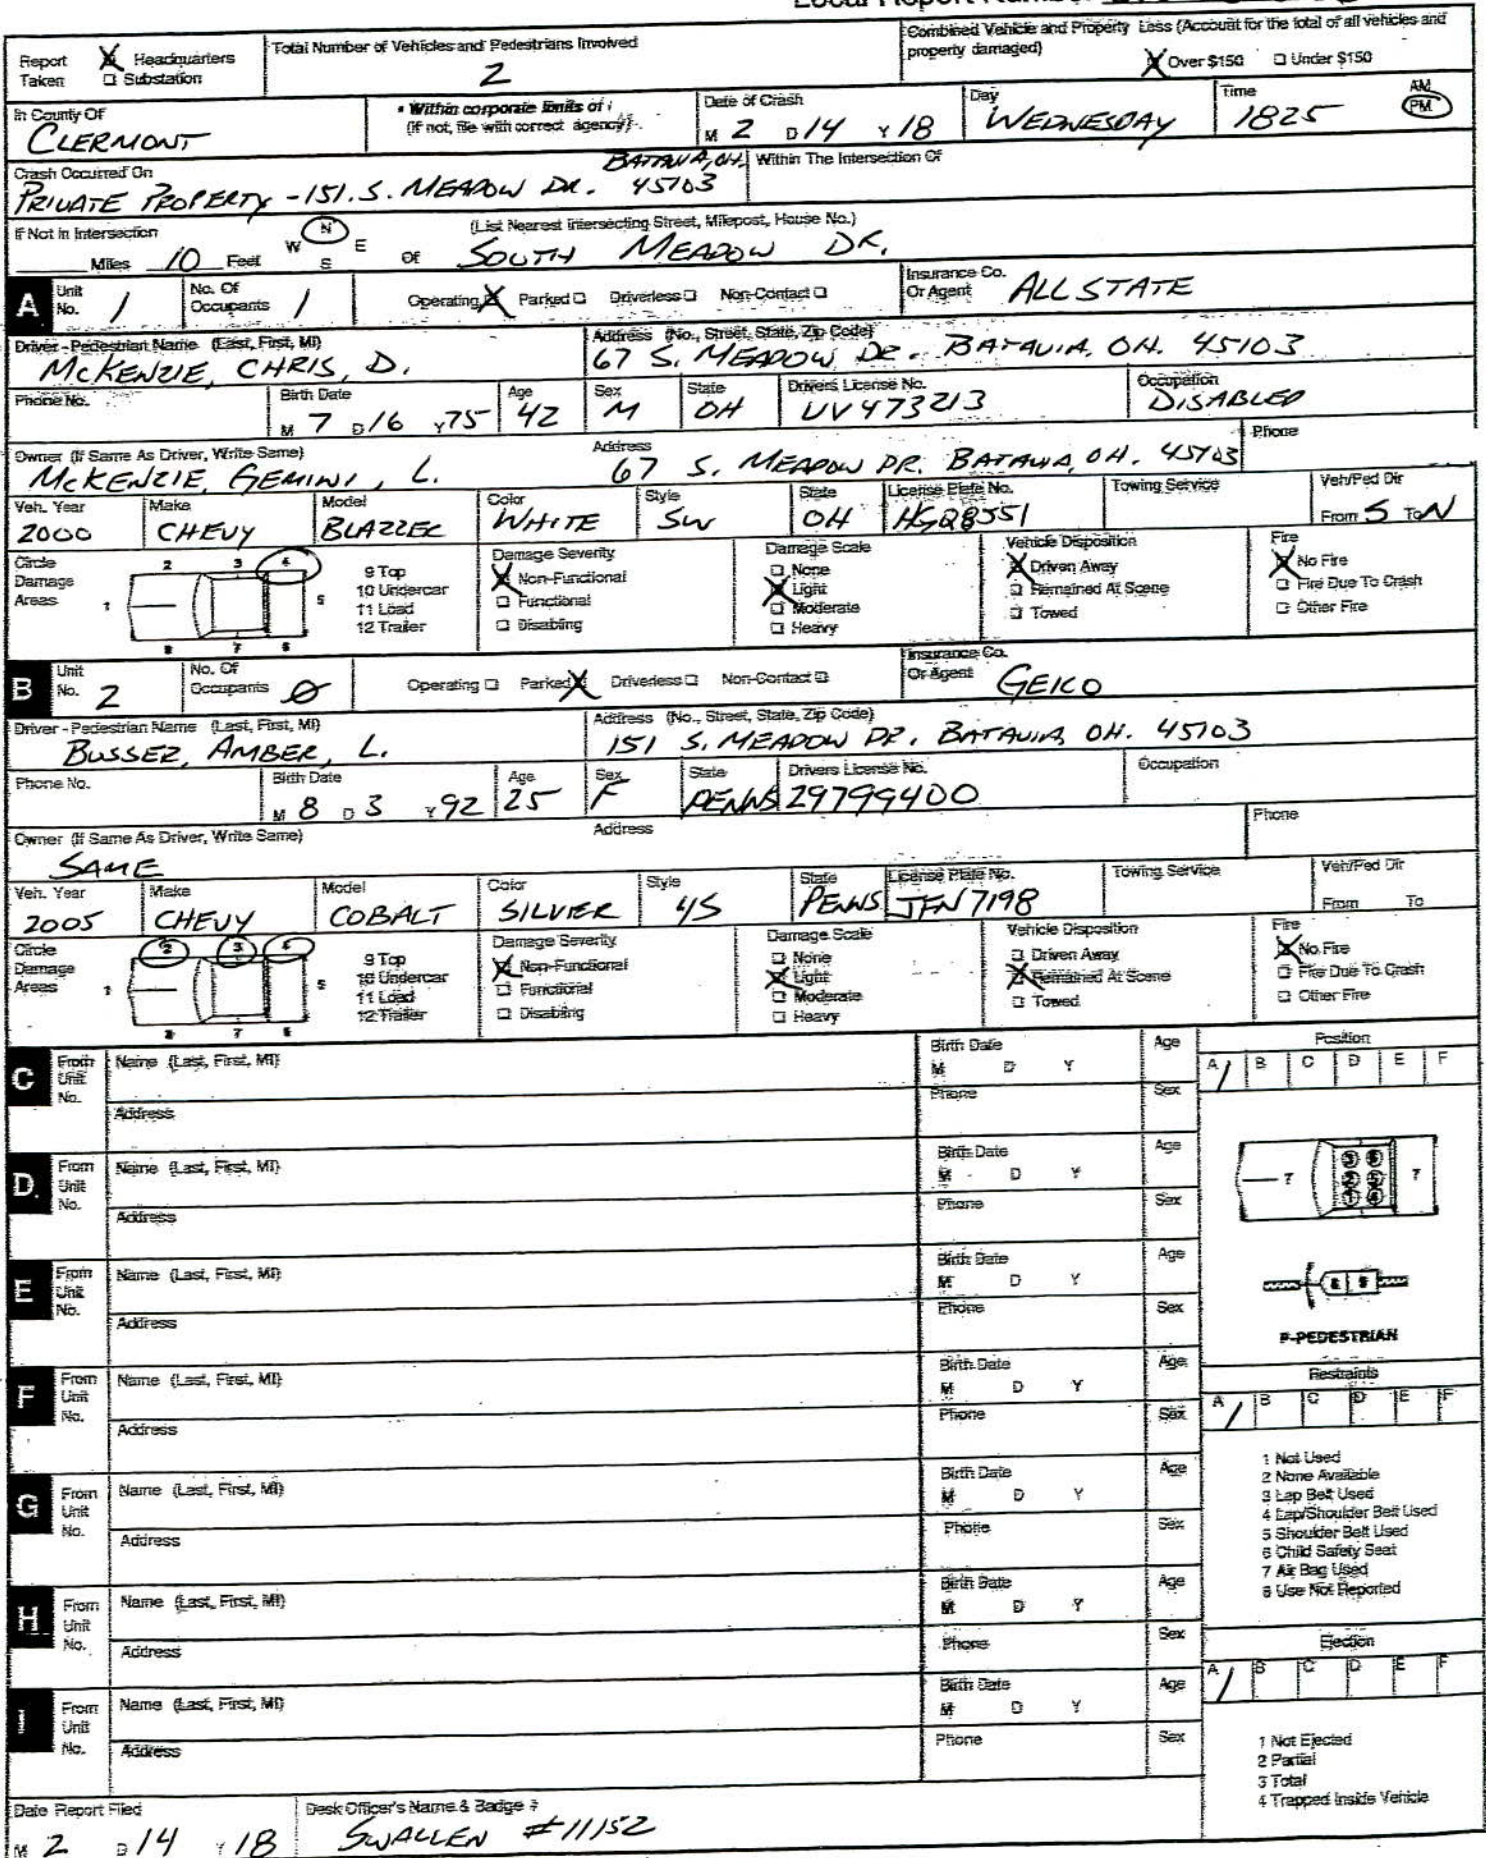 Local Report Number
Report Taken X Headquarters □ Substation
Total Number of Vehicles and Pedestrians Involved 2
Combined Vehicle and Property Loss (Account for the total of all vehicles and property damaged) X Over $150 □ Under $150
In County Of CLERMONT
• Within corporate limits of (if not, file with correct agency)
Date of Crash M 2 D 14 Y 18
Day WEDNESDAY
Time 1825 AM PM
Crash Occurred On PRIVATE PROPERTY - 151. S. MEADOW DR. BATAVIA, OH. 45103
Within The Intersection Of
If Not in Intersection Miles 10 Feet N W E S Of (List Nearest Intersecting Street, Milepost, House No.) SOUTH MEADOW DR.
A Unit No. 1 No. Of Occupants 1 Operating X Parked □ Driverless □ Non-Contact □ Insurance Co. Or Agent ALLSTATE
Driver - Pedestrian Name (Last, First, MI) MCKENZIE, CHRIS, D.
Address (No., Street, State, Zip Code) 67 S. MEADOW DR. BATAVIA, OH. 45103
Phone No. Birth Date M 7 D 16 Y 75 Age 42 Sex M State OH Drivers License No. UV473213 Occupation DISABLED
Owner (If Same As Driver, Write Same) MCKENZIE, GEMINI, L. Address 67 S. MEADOW DR. BATAVIA, OH. 45103 Phone
Veh. Year 2000 Make CHEVY Model BLAZZER Color WHITE Style SW State OH License Plate No. HGQ8551 Towing Service Veh/Ped Dir From S To N
Circle Damage Areas 1 2 3 4 5 6 7 8
9 Top
10 Undercar
11 Load
12 Trailer
Damage Severity X Non-Functional □ Functional □ Disabling
Damage Scale □ None X Light □ Moderate □ Heavy
Vehicle Disposition X Driven Away □ Remained At Scene □ Towed
Fire X No Fire □ Fire Due To Crash □ Other Fire
B Unit No. 2 No. Of Occupants Ø Operating □ Parked X Driverless □ Non-Contact □ Insurance Co. Or Agent GEICO
Driver - Pedestrian Name (Last, First, MI) BUSSEZ, AMBER, L.
Address (No., Street, State, Zip Code) 151 S. MEADOW DR. BATAVIA OH. 45103
Phone No. Birth Date M 8 D 3 Y 92 Age 25 Sex F State PENNS Drivers License No. 29799400 Occupation
Owner (If Same As Driver, Write Same) SAME Address Phone
Veh. Year 2005 Make CHEVY Model COBALT Color SILVER Style 4S State PENNS License Plate No. JFN7198 Towing Service Veh/Ped Dir From To
Circle Damage Areas 1 2 3 4 5 6 7 8
9 Top
10 Undercar
11 Load
12 Trailer
Damage Severity X Non-Functional □ Functional □ Disabling
Damage Scale □ None X Light □ Moderate □ Heavy
Vehicle Disposition □ Driven Away X Remained At Scene □ Towed
Fire X No Fire □ Fire Due To Crash □ Other Fire
C From Unit No. Name (Last, First, MI) Birth Date M D Y Age
Address Phone Sex
D. From Unit No. Name (Last, First, MI) Birth Date M D Y Age
Address Phone Sex
E From Unit No. Name (Last, First, MI) Birth Date M D Y Age
Address Phone Sex
F From Unit No. Name (Last, First, MI) Birth Date M D Y Age
Address Phone Sex
G From Unit No. Name (Last, First, MI) Birth Date M D Y Age
Address Phone Sex
H From Unit No. Name (Last, First, MI) Birth Date M D Y Age
Address Phone Sex
I From Unit No. Name (Last, First, MI) Birth Date M D Y Age
Address Phone Sex
Position
A 1 B C D E F
7 7
P-PEDESTRIAN
Restraints
A 1 B C D E F
1 Not Used
2 None Available
3 Lap Belt Used
4 Lap/Shoulder Belt Used
5 Shoulder Belt Used
6 Child Safety Seat
7 Air Bag Used
8 Use Not Reported
Ejection
A 1 B C D E F
1 Not Ejected
2 Partial
3 Total
4 Trapped Inside Vehicle
Date Report Filed M 2 D 14 Y 18
Desk Officer's Name & Badge # SWALLEN #11152